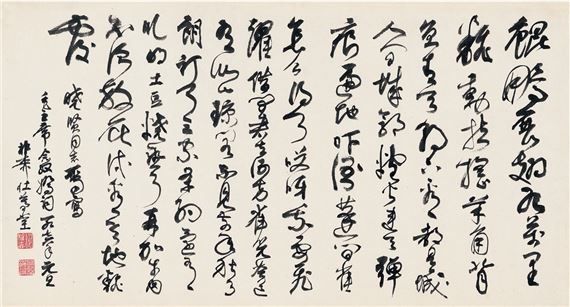 鲲鹏展翅九万里
翻动扶摇羊角背
负青天朝下看都是城
人间城郭炮火连天弹
痕遍地吓倒蓬间雀
怎么得了哎呀我要飞
跃借问君去何方雀儿答道
有仙山琼阁不见前年秋月
朗订了三家条约还有
吃的土豆烧熟了再加牛肉
不须放屁试看天地翻
覆
晓贤同志嘱写
毛主席念奴娇词一九七六年元旦